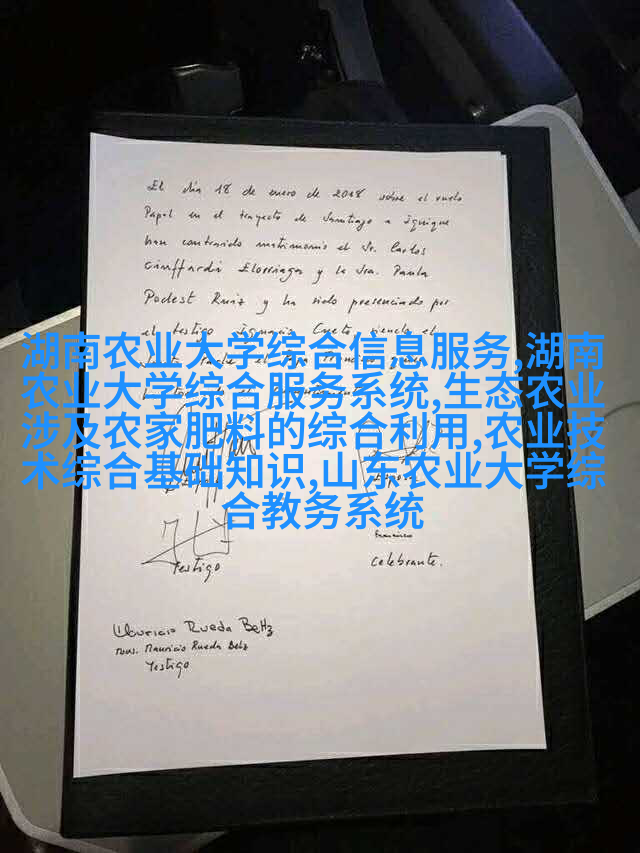 El día 18 de enero de 2018 sobre el vuelo
Papal en el trayecto de Santiago a Iquique
han contraido matrimonio el Sr. Carlos
Ciuffardi Elorriaga y la Sra. Paula
Podest Ruiz y ha sido presenciado por
el testigo Ignacio Cueto, siendo el
湖南农业大学综合信息服务,湖南
农业大学综合服务系统,生态农业
涉及农家肥料的综合利用,农业技
术综合基础知识,山东农业大学综
合教务系统
Esposa
Franciscus
Testigo
Celebrante.
Mauricio Rueda Beltz
Mons. Mauricio Rueda Beltz
Testigo